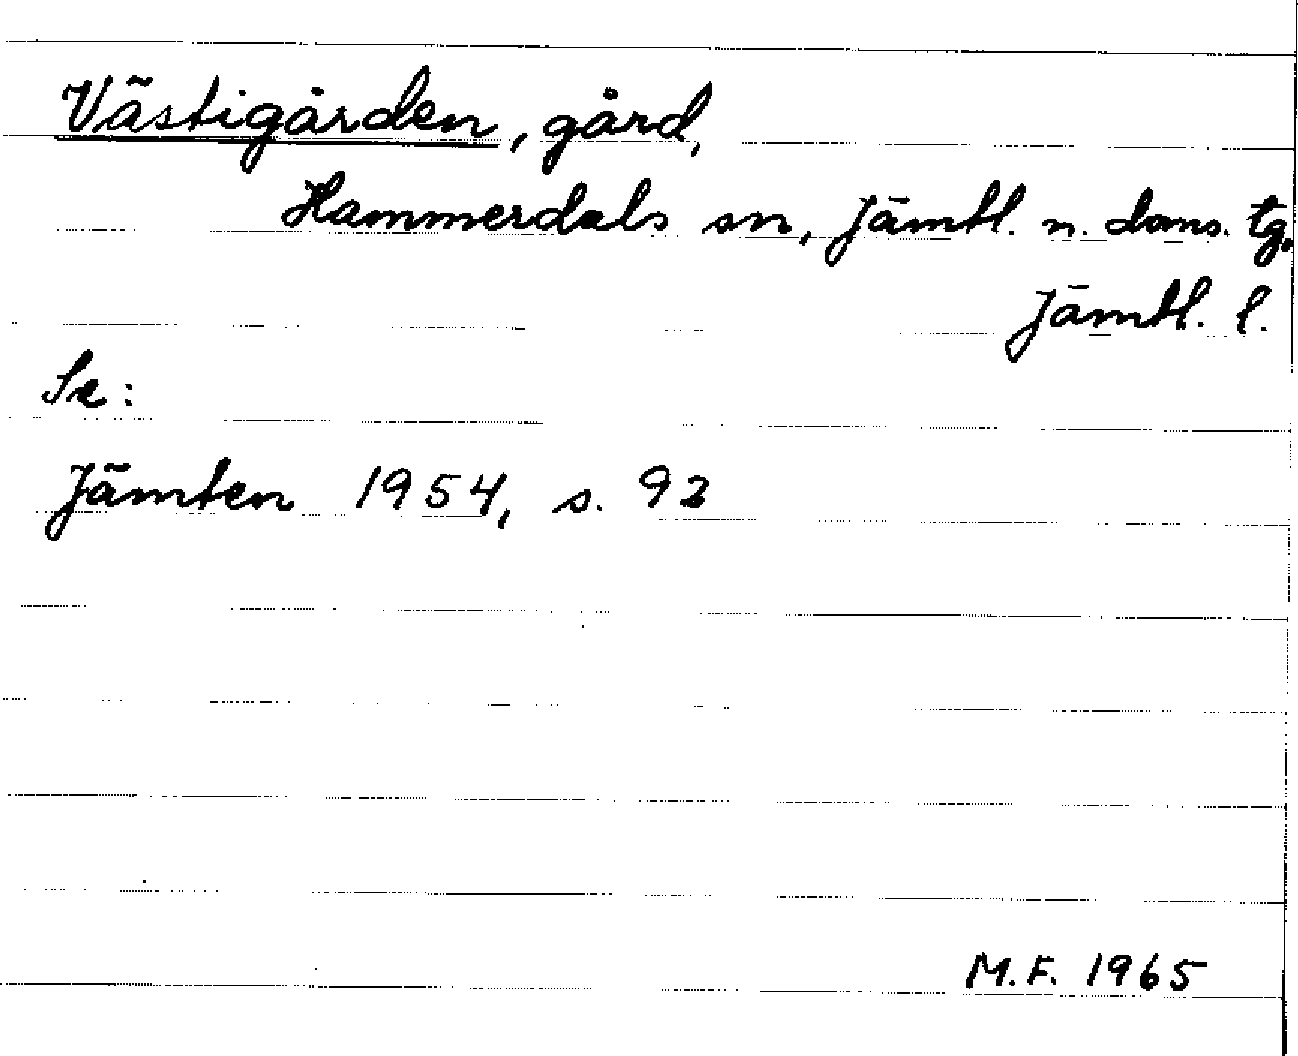 Västigården, gård,
Hammerdals sn, Jämtl. n. doms. tg,
Jämtl. l.
Se:
Jämten 1954, s. 92
M.F. 1965